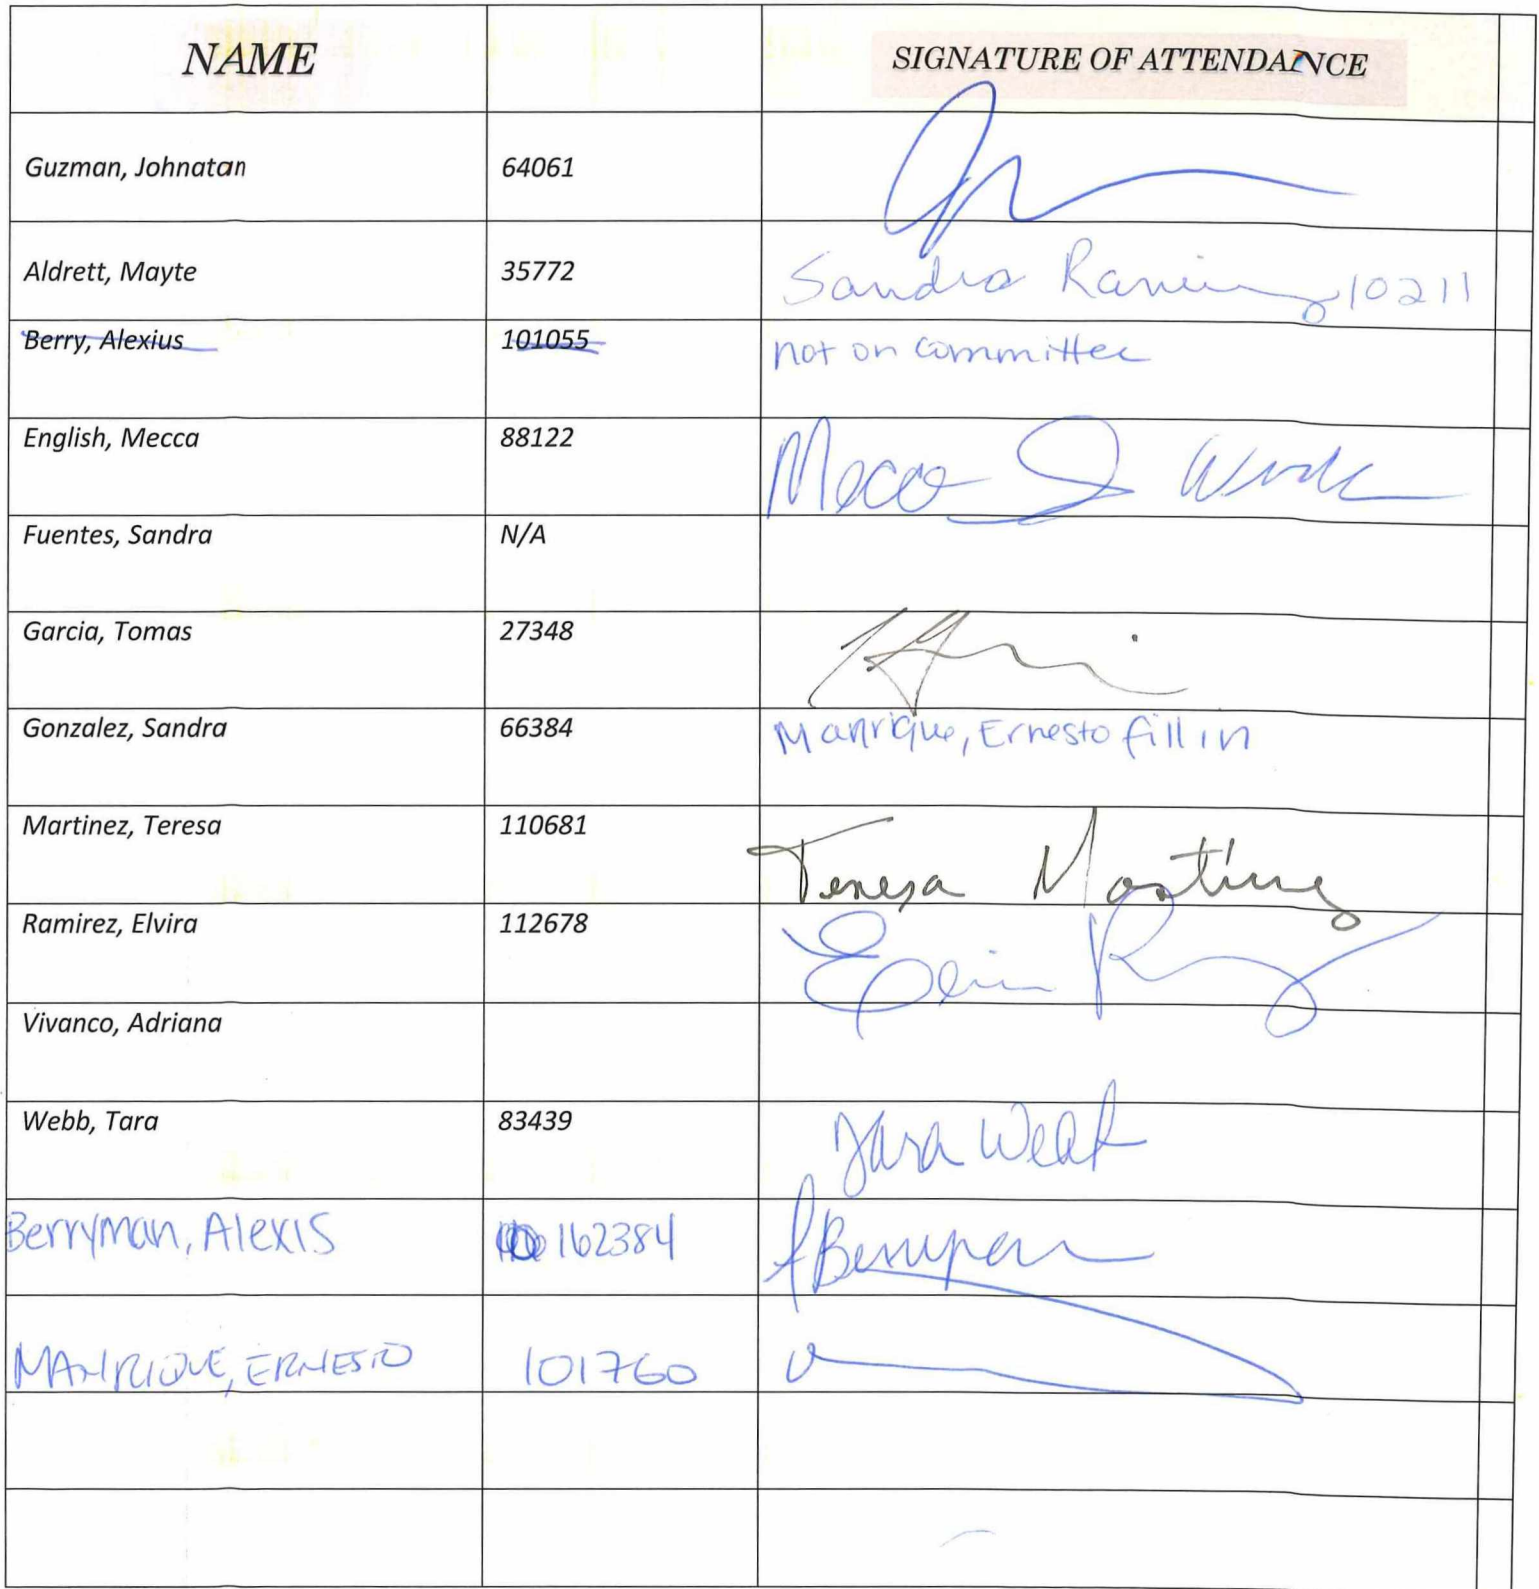 NAME SIGNATURE OF ATTENDANCE
Guzman, Johnatan 64061
Aldrett, Mayte 35772 Sandra Ramirez 10211
Berry, Alexius 101055 not on committee
English, Mecca 88122 Mecca
Fuentes, Sandra N/A
Garcia, Tomas 27348
Gonzalez, Sandra 66384 Manrique, Ernesto fill in
Martinez, Teresa 110681 Teresa Martinez
Ramirez, Elvira 112678
Vivanco, Adriana
Webb, Tara 83439 Tara Webb
Berryman, Alexis 162384 A Berryman
MANRIQUE, ERNESTO 101760